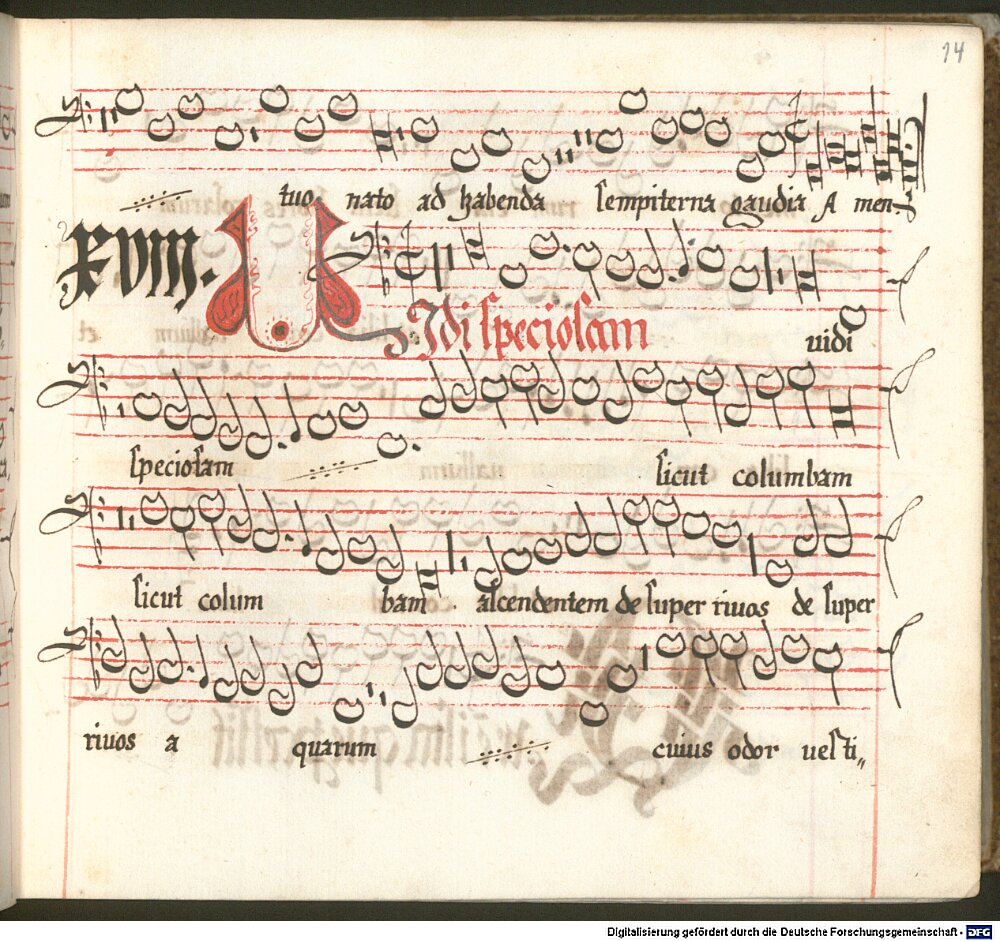 14
tuo nato ad habenda sempiterna gaudia A men.
XVIII.
VIdi speciosam
vidi
speciosam sicut columbam
sicut colum bam ascendentem de super rivos de super
rivos a quarum cuius odor vesti„
Digitalisierung gefördert durch die Deutsche Forschungsgemeinschaft - DFG